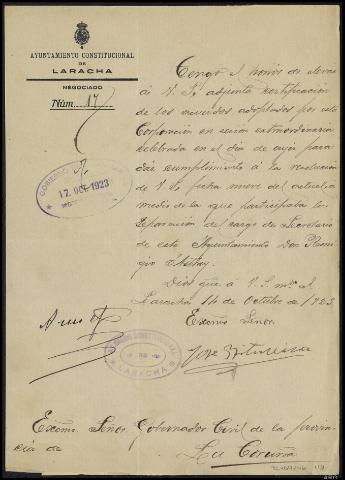 AYUNTAMIENTO CONSTITUCIONAL
DE
LARACHA
NEGOCIADO
Núm. 17
Tengo el honor de elevar
á V. E. adjunta certificación
de los acuerdos adoptados por esta
Corporación en sesión extraordinaria
celebrada en el día de ayer para
dar cumplimiento á la resolución
de V. E. fecha nueve del actual
medio de la que participaba la
separación del cargo de Secretario
de este Ayuntamiento Don Remi
gio Astray.
Dios gue á V. E. ms. as.
Laracha 14 de Octubre de 1923
Excmo Señor.
GOBIERNO
17 OCT 1923
LARACHA
Excmo. Señor Gobernador Civil de la provin
cia de
La Coruña